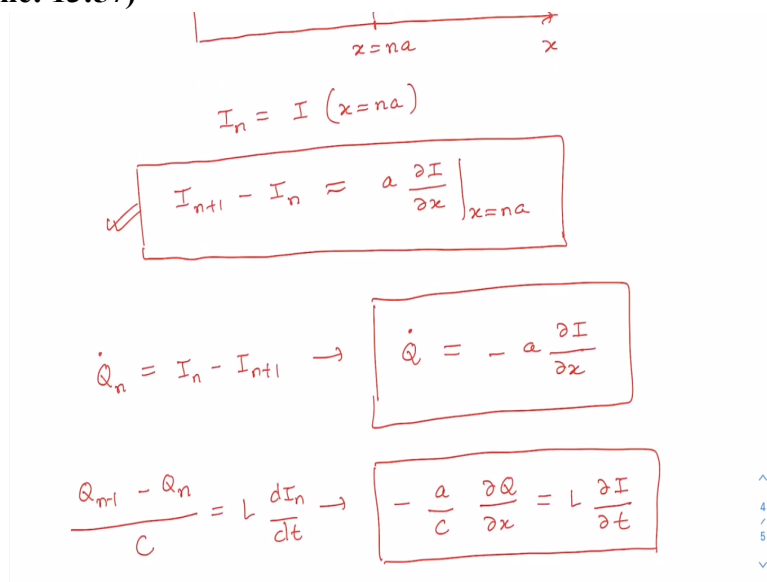 x=na x
I_n = I (x=na)
I_{n+1} - I_n ≈ a ∂I/∂x |_{x=na}
Q̇_n = I_n - I_{n+1} → Q̇ = - a ∂I/∂x
(Q_{n-1} - Q_n)/C = L dI_n/dt → - a/C ∂Q/∂x = L ∂I/∂t
4
/
5